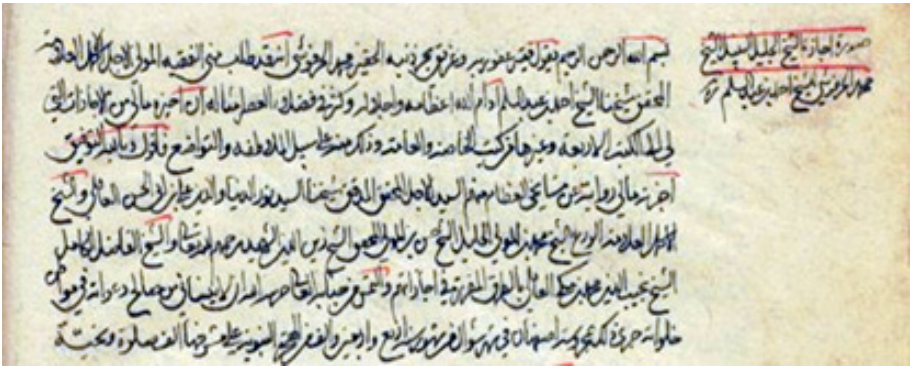 صورة اجازة الشيخ الجليل النبيل الشيخ
محمد الحرفوشي للشيخ احمد بن عبد السلم
بسم الله الرحمن الرحيم يقول فقير عفو ربه وغريق بحر ذنبه الحقير محمد الحرفوشي انه قد طلب مني الفقيه المولى الاجل الاكمل العلامة
المحقق شيخنا الشيخ احمد بن عبد السلم ادام الله اعظامه واجلاله وكثر في فضلاء العصر امثاله ان اخبره مالي من الاجازات التي
لي الى الكتب الاربعة وغيرها من كتب الخاصة والعامة وذلك منه على سبيل الملاطفة والتواضع فاقول وبالله التوفيق
اجزت له مالي روايته عن مشايخي العظام منهم السيد الاجل المحقق المدقق شيخنا السيد نور الدنيا والدين علي بن ابي الحسن العاملي والشيخ
العلامة الورع الشيخ محمد بن المولى الجليل الشيخ حسن بن المولى المحقق الشيخ زين الدين الشهيد رحمهم الله تعالى والشيخ الفاضل الكامل
الشيخ نجيب الدين محمد بن مكي العاملي بالطرق المقررة في اجازاتهم والتمس من جنابه العالي حرسه الله ان لا ينساني من صالح دعواته في
خلواته حرر ذلك اصفهان في شهر شوال من شهور سنة اربع واربعين والف من الهجرة النبوية على مشرفها الف صلوة وتحية